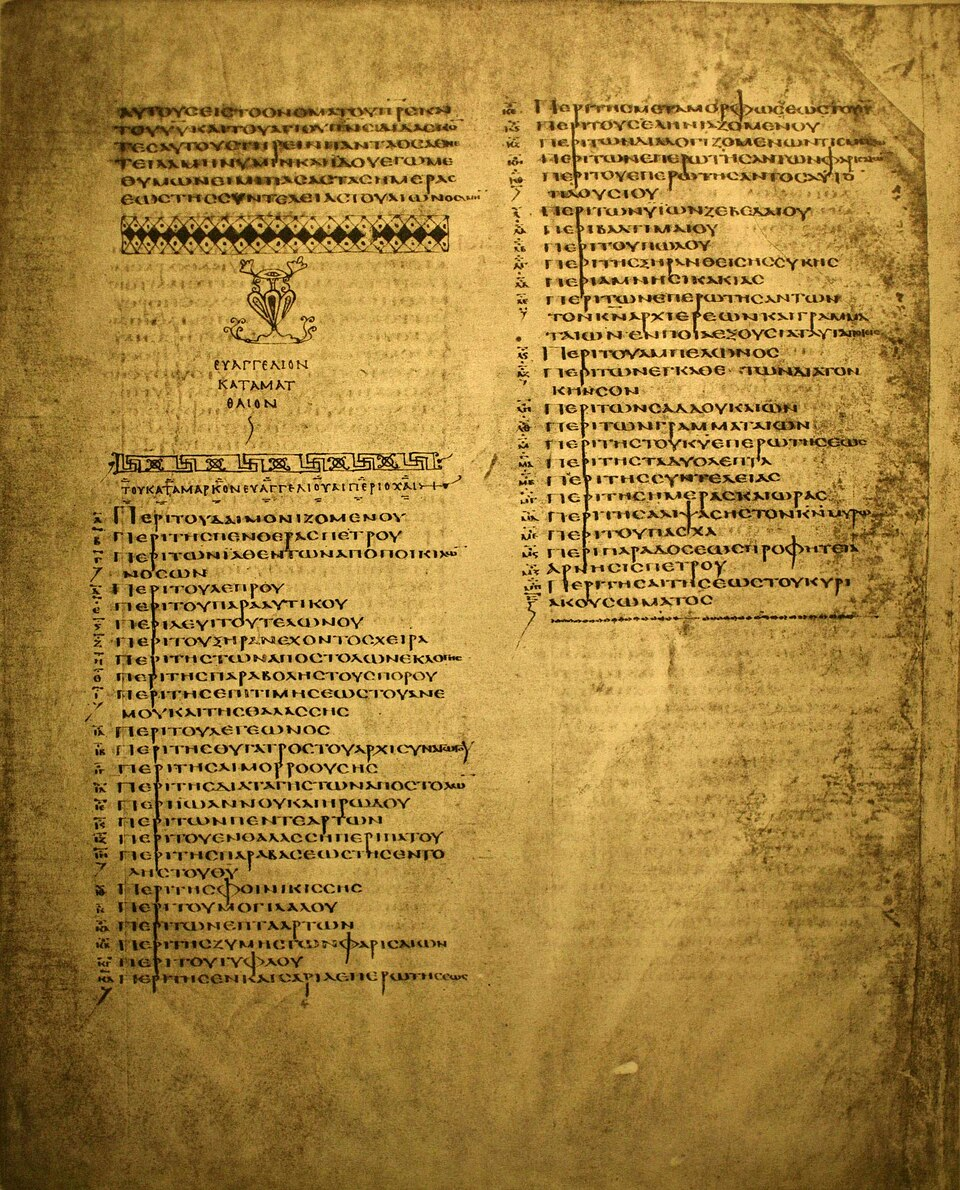 ΑΥΤΟΥΣΕΙΣΤΟΟΝΟΜΑΤΟΥΠΡΣΚΑΙ
ΤΟΥΥΥΚΑΙΤΟΥΑΓΙΟΥΠΝΣΔΙΔΑΣΚΟ
ΤΕΣΑΥΤΟΥΣΤΗΡΕΙΝΠΑΝΤΑΟΣΑΕΝΕ
ΤΕΙΛΑΜΗΝΥΜΙΝΚΑΙΙΔΟΥΕΓΩΜΕ
ΘΥΜΩΝΕΙΜΙΠΑΣΑΣΤΑΣΗΜΕΡΑΣ
ΕΩΣΤΗΣΣΥΝΤΕΛΕΙΑΣΤΟΥΑΙΩΝΟΣ
ΕΥΑΓΓΕΛΙΟΝ
ΚΑΤΑΜΑΤ
ΘΑΙΟΝ
ΤΟΥΚΑΤΑΜΑΡΚΟΝΕΥΑΓΓΕΛΙΟΥΑΙΠΕΡΙΟΧΑΙ
Α ΠΕΡΙΤΟΥΔΑΙΜΟΝΙΖΟΜΕΝΟΥ
Β ΠΕΡΙΤΗΣΠΕΝΘΕΡΑΣΠΕΤΡΟΥ
Γ ΠΕΡΙΤΩΝΙΑΘΕΝΤΩΝΑΠΟΠΟΙΚΙΛΩ
ΝΟΣΩΝ
Δ ΠΕΡΙΤΟΥΛΕΠΡΟΥ
Ε ΠΕΡΙΤΟΥΠΑΡΑΛΥΤΙΚΟΥ
ΠΕΡΙΛΕΥΙΤΟΥΤΕΛΩΝΟΥ
Ζ ΠΕΡΙΤΟΥΞΗΡΑΝΕΧΟΝΤΟΣΧΕΙΡΑ
Η ΠΕΡΙΤΗΣΤΩΝΑΠΟΣΤΟΛΩΝΕΚΛΟΓΗΣ
Θ ΠΕΡΙΤΗΣΠΑΡΑΒΟΛΗΣΤΟΥΣΠΟΡΟΥ
Ι ΠΕΡΙΤΗΣΕΠΙΤΙΜΗΣΕΩΣΤΟΥΑΝΕ
ΜΟΥΚΑΙΤΗΣΘΑΛΑΣΣΗΣ
ΙΑ ΠΕΡΙΤΟΥΛΕΓΕΩΝΟΣ
ΙΒ ΠΕΡΙΤΗΣΘΥΓΑΤΡΟΣΤΟΥΑΡΧΙΣΥΝΑΓΩΓΟΥ
ΙΓ ΠΕΡΙΤΗΣΑΙΜΟΡΡΟΟΥΣΗΣ
ΙΔ ΠΕΡΙΤΗΣΔΙΑΤΑΓΗΣΤΩΝΑΠΟΣΤΟΛΩ
ΙΕ ΠΕΡΙΙΩΑΝΝΟΥΚΑΙΗΡΩΔΟΥ
ΙϚ ΠΕΡΙΤΩΝΠΕΝΤΕΑΡΤΩΝ
ΙΖ ΠΕΡΙΤΟΥΕΝΘΑΛΑΣΣΗΠΕΡΙΠΑΤΟΥ
ΙΗ ΠΕΡΙΤΗΣΠΑΡΑΒΑΣΕΩΣΤΗΣΕΝΤΟ
ΛΗΣΤΟΥΘΥ
ΙΘ ΠΕΡΙΤΗΣΦΟΙΝΙΚΙΣΣΗΣ
Κ ΠΕΡΙΤΟΥΜΟΓΙΛΑΛΟΥ
ΚΑ ΠΕΡΙΤΩΝΕΠΤΑΑΡΤΩΝ
ΚΒ ΠΕΡΙΤΗΣΖΥΜΗΣΤΩΝΦΑΡΙΣΑΙΩΝ
ΚΓ ΠΕΡΙΤΟΥΤΥΦΛΟΥ
ΚΔ ΠΕΡΙΤΗΣΕΝΚΑΙΣΑΡΙΑΕΠΕΡΩΤΗΣΕΩΣ
ΚΕ ΠΕΡΙΤΗΣΜΕΤΑΜΟΡΦΩΣΕΩΣΤΟΥΙΥ
ΚϚ ΠΕΡΙΤΟΥΣΕΛΗΝΙΑΖΟΜΕΝΟΥ
ΚΖ ΠΕΡΙΤΩΝΔΙΑΛΟΓΙΖΟΜΕΝΩΝΤΙΣ
ΚΗ ΠΕΡΙΤΩΝΕΠΕΡΩΤΗΣΑΝΤΩΝΦΑΡΙΣΑΙ
ΚΘ ΠΕΡΙΤΟΥΕΠΕΡΩΤΗΣΑΝΤΟΣΑΥΤΟ
ΠΛΟΥΣΙΟΥ
Λ ΠΕΡΙΤΩΝΥΙΩΝΖΕΒΕΔΑΙΟΥ
ΛΑ ΠΕΡΙΒΑΡΤΙΜΑΙΟΥ
ΛΒ ΠΕΡΙΤΟΥΠΩΛΟΥ
ΛΓ ΠΕΡΙΤΗΣΞΗΡΑΝΘΕΙΣΗΣΣΥΚΗΣ
ΛΔ ΠΕΡΙΑΜΝΗΣΙΚΑΚΙΑΣ
ΛΕ ΠΕΡΙΤΩΝΕΠΕΡΩΤΗΣΑΝΤΩΝ
ΤΟΝΚΝΑΡΧΙΕΡΕΩΝΚΑΙΓΡΑΜΜΑ
ΤΑΙΩΝΕΝΠΟΙΑΕΞΟΥΣΙΑΤΑΥΤΑΠΟΙΕΙΣ
ΛϚ ΠΕΡΙΤΟΥΑΜΠΕΛΩΝΟΣ
ΛΖ ΠΕΡΙΤΩΝΕΓΚΑΘΕΤΩΝΔΙΑΤΟΝ
ΚΗΝΣΟΝ
ΛΗ ΠΕΡΙΤΩΝΣΑΔΔΟΥΚΑΙΩΝ
ΛΘ ΠΕΡΙΤΩΝΓΡΑΜΜΑΤΑΙΩΝ
Μ ΠΕΡΙΤΗΣΤΟΥΚΥΕΠΕΡΩΤΗΣΕΩΣ
ΜΑ ΠΕΡΙΤΗΣΤΑΔΥΟΛΕΠΤΑ
ΜΒ ΠΕΡΙΤΗΣΣΥΝΤΕΛΕΙΑΣ
ΜΓ ΠΕΡΙΤΗΣΗΜΕΡΑΣΚΑΙΩΡΑΣ
ΜΔ ΠΕΡΙΤΗΣΑΛΙΨΑΣΗΣΤΟΝΚΝΜΥΡΩ
ΜΕ ΠΕΡΙΤΟΥΠΑΣΧΑ
ΜϚ ΠΕΡΙΠΑΡΑΔΟΣΕΩΣΠΡΟΦΗΤΕΙΑ
ΑΡΝΗΣΙΣΠΕΤΡΟΥ
ΜΗ ΠΕΡΙΤΗΣΑΙΤΗΣΕΩΣΤΟΥΚΥΡΙ
ΑΚΟΥΣΩΜΑΤΟΣ